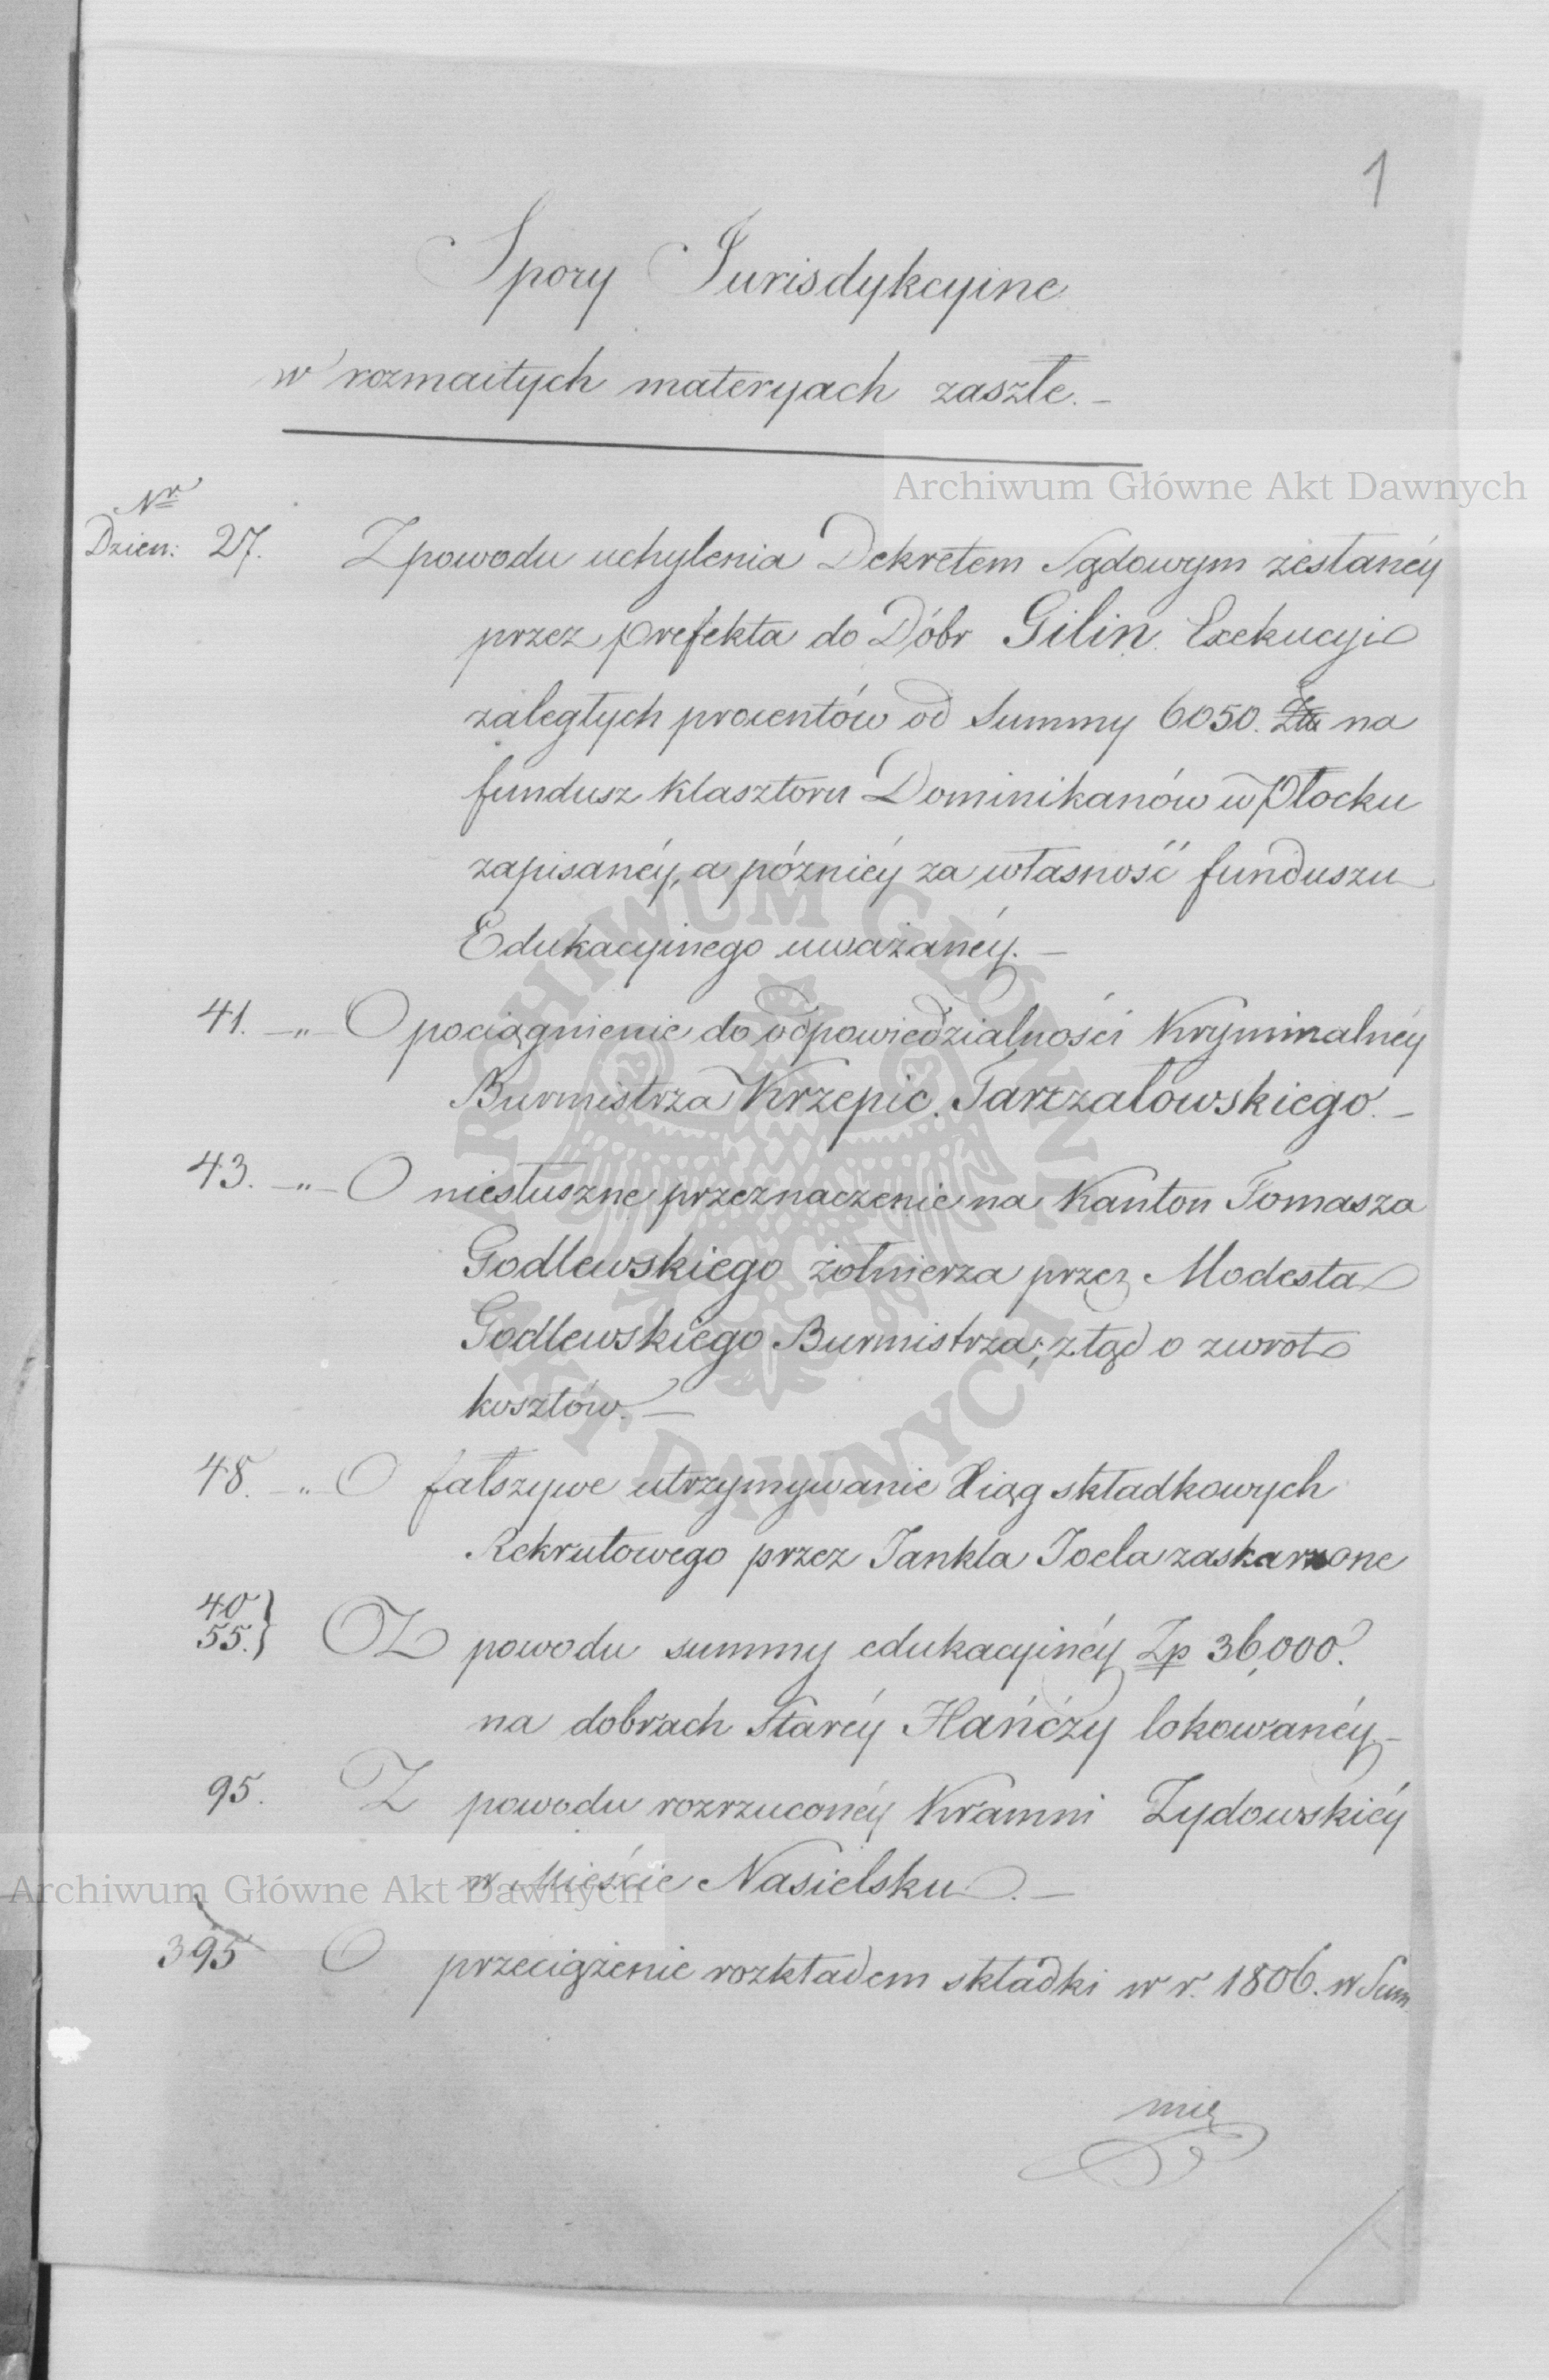 1
Spory Jurisdykcyine
w rozmaitych materyach zaszłe.-
Archiwum Główne Akt Dawnych
Nr
Dzien: 27. Z powodu uchylenia Dekretem Sądowym zesłanéy
przez prefekta do Dóbr Gilin Exekucyi
zaległych procentów od Summy 6050. na
fundusz Klasztoru Dominikanów w Płocku
zapisanéy, a pózniéy za własność funduszu
Edukacyinego uważanéy.-
41. -„- O pociągnienie do odpowiedzialności Kryminalnéy
Burmistrza Krzepic Tarczałowskiego.-
43. -„- O niesłuszne przeznaczenie na Kanton Tomasza
Godlewskiego żołnierza przez Modesta
Godlewskiego Burmistrza; ztąd o zwrot
kosztów.-
48. -„- O fałszywe utrzymywanie Xiąg składkowych
Rekrutowego przez Jankla Joela zaskarzone
40
55.} Z powodu summy edukacyinéy Zp 36,000.
na dobrach Staréy Hańczy lokowanéy.-
95. Z powodu rozrzuconéy Kramni Zydowskiéy
w Mieście Nasielsku.-
Archiwum Główne Akt Dawnych
395 O przeciążenie rozkładem składki w r. 1806. w Sum
mie
ARCHIWUM GŁÓWNE AKT DAWNYCH